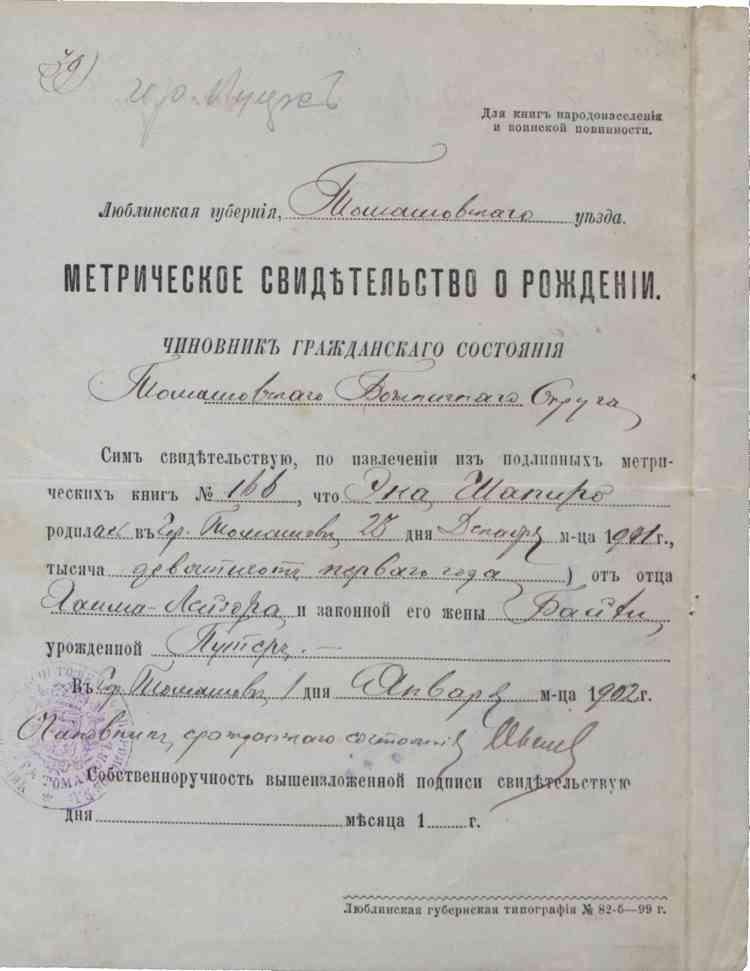 гр. Луцкъ
Для книгъ народонаселенія
и воинской повинности.
Люблинская губернія, Томашовскаго уѣзда.
МЕТРИЧЕСКОЕ СВИДѢТЕЛЬСТВО О РОЖДЕНІИ.
ЧИНОВНИКЪ ГРАЖДАНСКАГО СОСТОЯНІЯ
Томашовскаго Божничнаго Округа
Симъ свидѣтельствую, по извлеченіи изъ подлинныхъ метри-
ческихъ книгъ № 166, что Эка Шапиро
родилась въ Гор. Томашовѣ 28 дня Декабря м-ца 1901 г.,
тысяча девятьсотъ перваго года) отъ отца
Хаима-Лейзера и законной его жены Байлы
урожденной
Въ Гор. Томашовѣ 1 дня Января м-ца 1902 г.
Чиновникъ гражданскаго состоянія
Собственноручность вышеизложенной подписи свидѣтельствую
дня месяца 1 г.
Люблинская губернская типографія № 82-5—99 г.